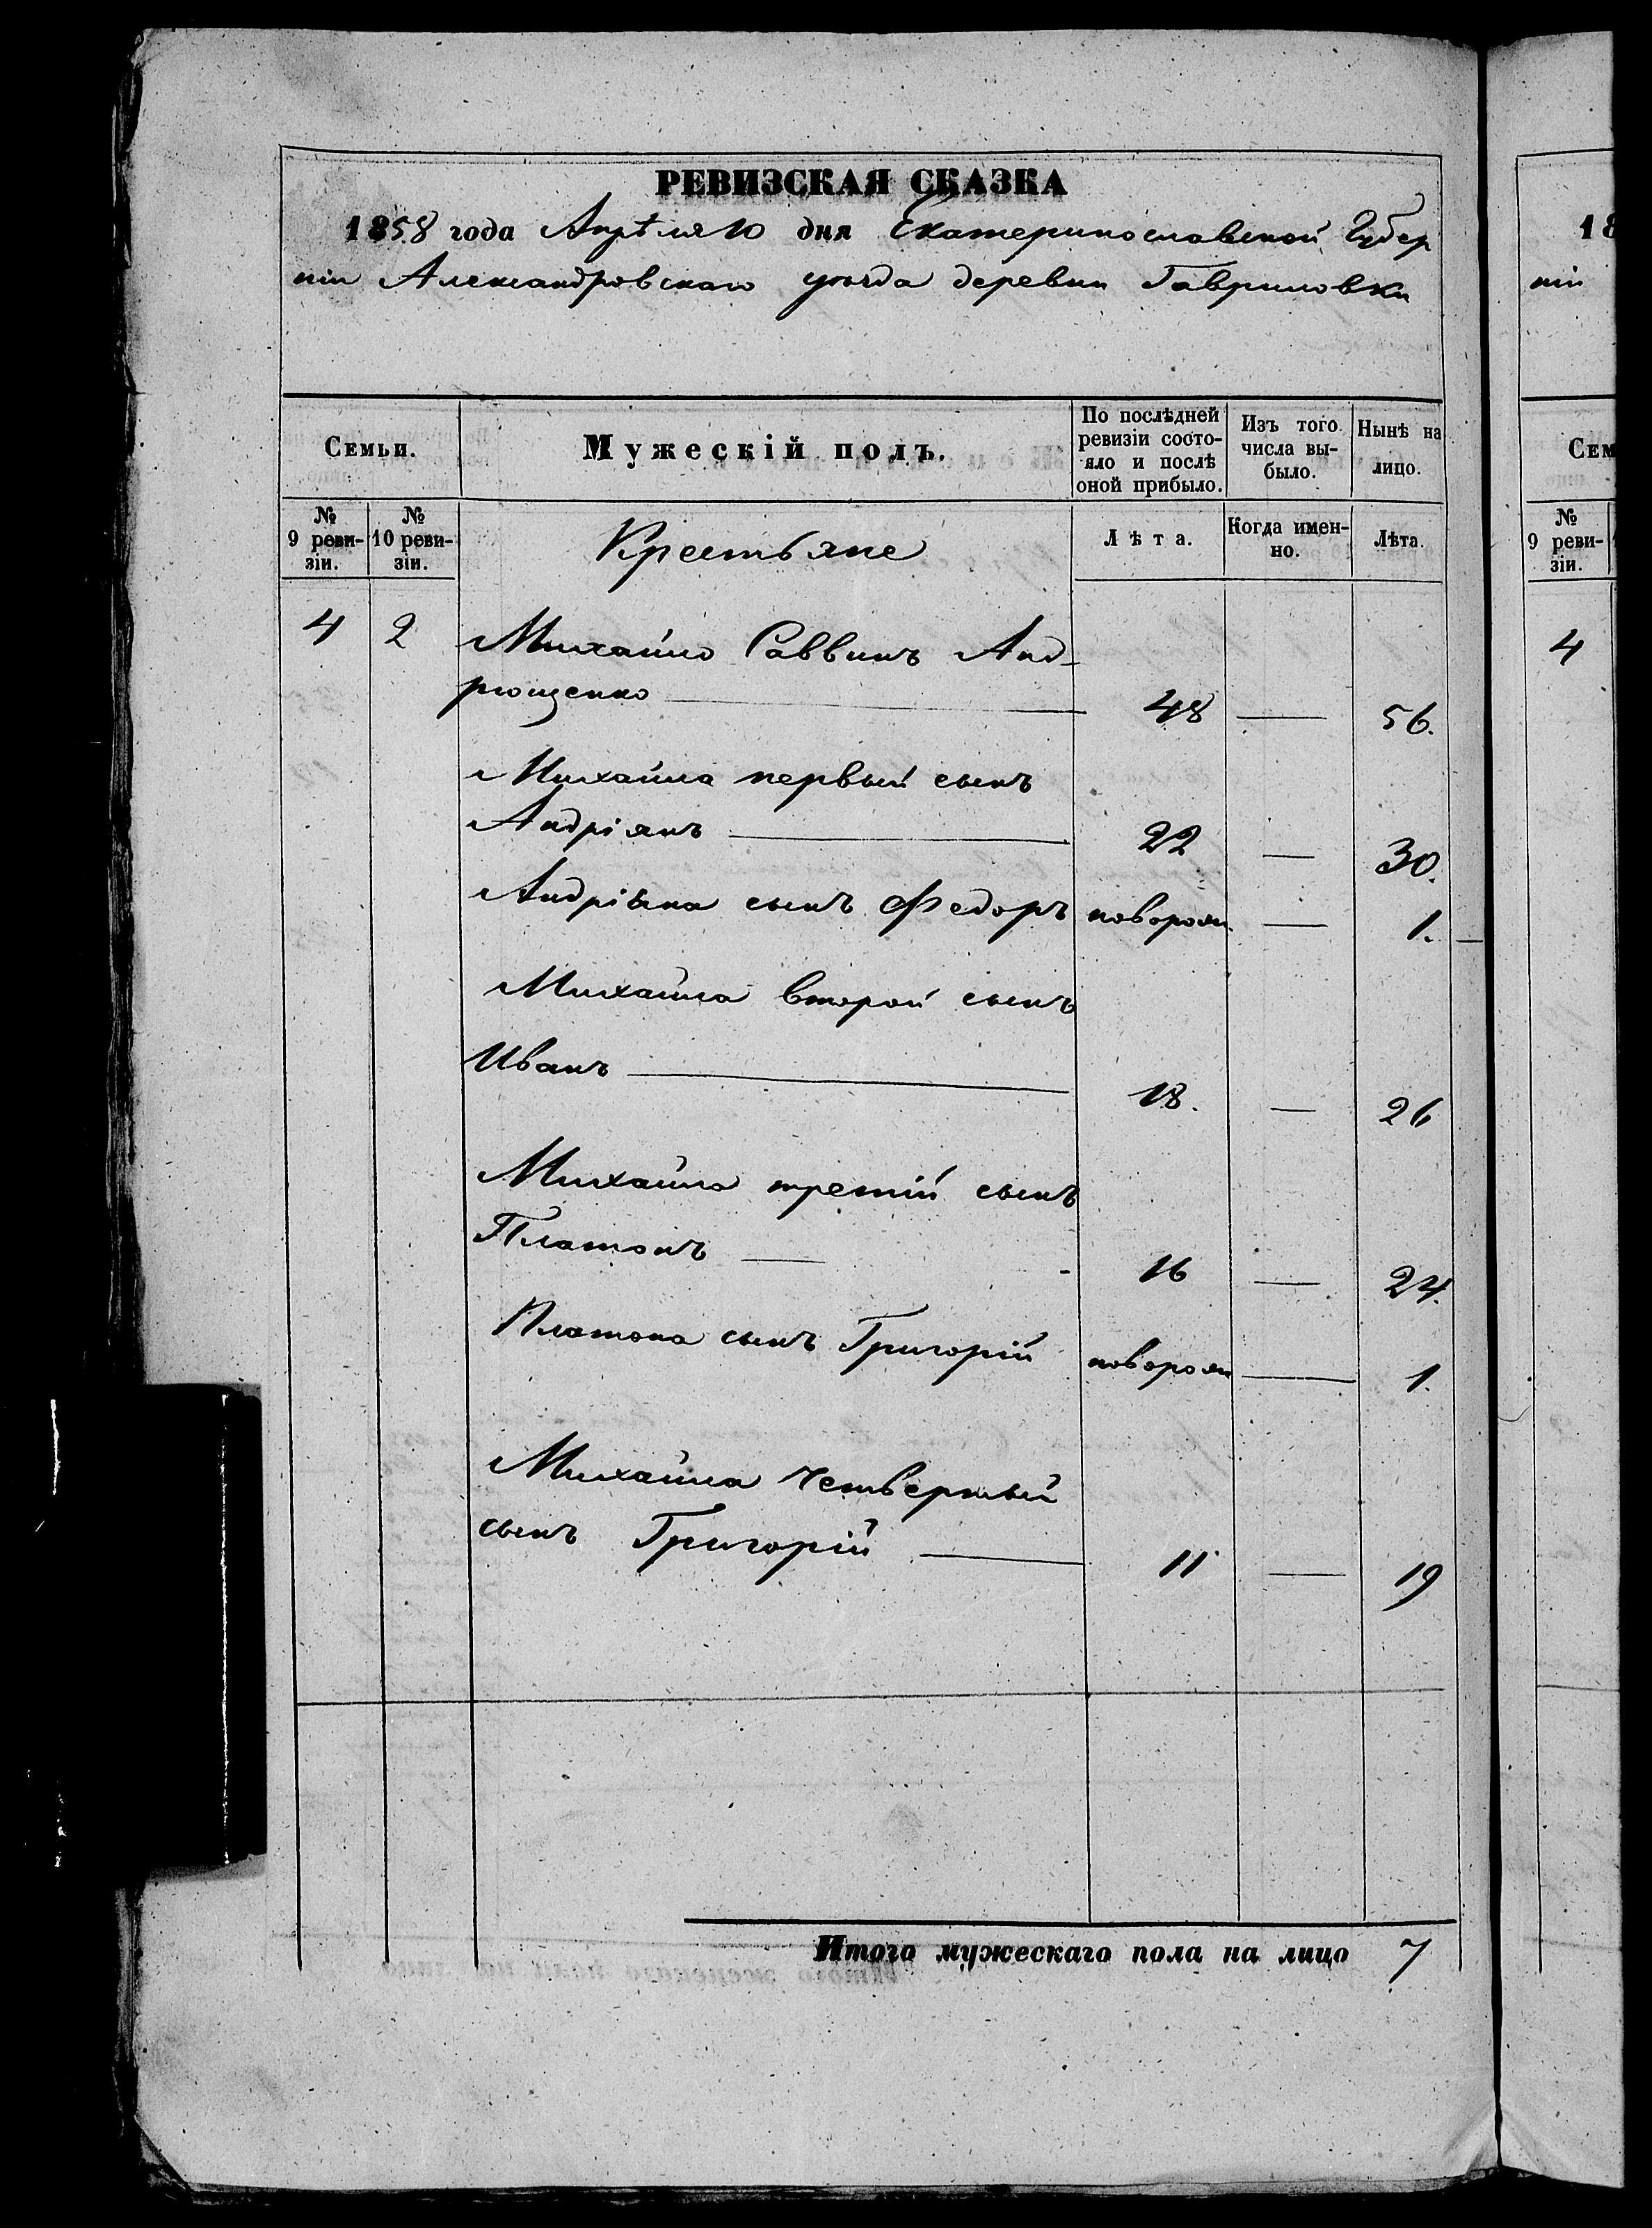 РЕВИЗСКАЯ СКАЗКА
1858 года Апрѣля 10 дня Екатеринославской Губер
ніи Александровскаго уѣзда деревни Гавриловки
Семьи. Мужескій полъ. По послѣдней ревизіи состояло и послѣ оной прибыло. Изъ того числа выбыло. Нынѣ на лицо.
№ 9 реви-зіи. № 10 реви-зіи. Крестьяне Лѣта. Когда имен-но. Лѣта.
4 2 Михайло Саввинъ Анд-
рющенко 48 — 56.
Михайла первый сынъ
Андріянъ 22 — 30.
Андріяна сынъ Федоръ новорож. — 1.
Михайла второй сынъ
Иванъ 18. — 26
Михайла третій сынъ
Платонъ — 16 — 24.
Платона сынъ Григорій новорож — 1.
Михайла четвертый
сынъ Григорій 11 — 19
Итого мужескаго пола на лицо 7
18
ніи
Сем
№
9 реви-
зіи.
4